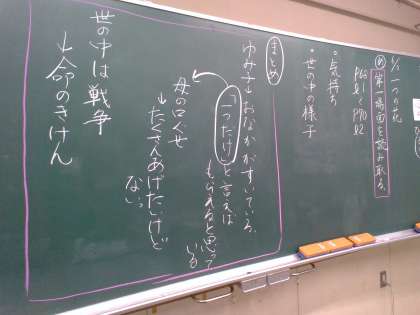 6/ 一つの花
め 第一場面を読み取る。
・気持ち
・世の中の様子
まとめ
ゆみ子→おなかがすいている。
「一つだけ」と言えば
もらえると思って
いる
母の口ぐせ
→たくさんあげたいけど
ない。
世の中は戦争
→命のきけん